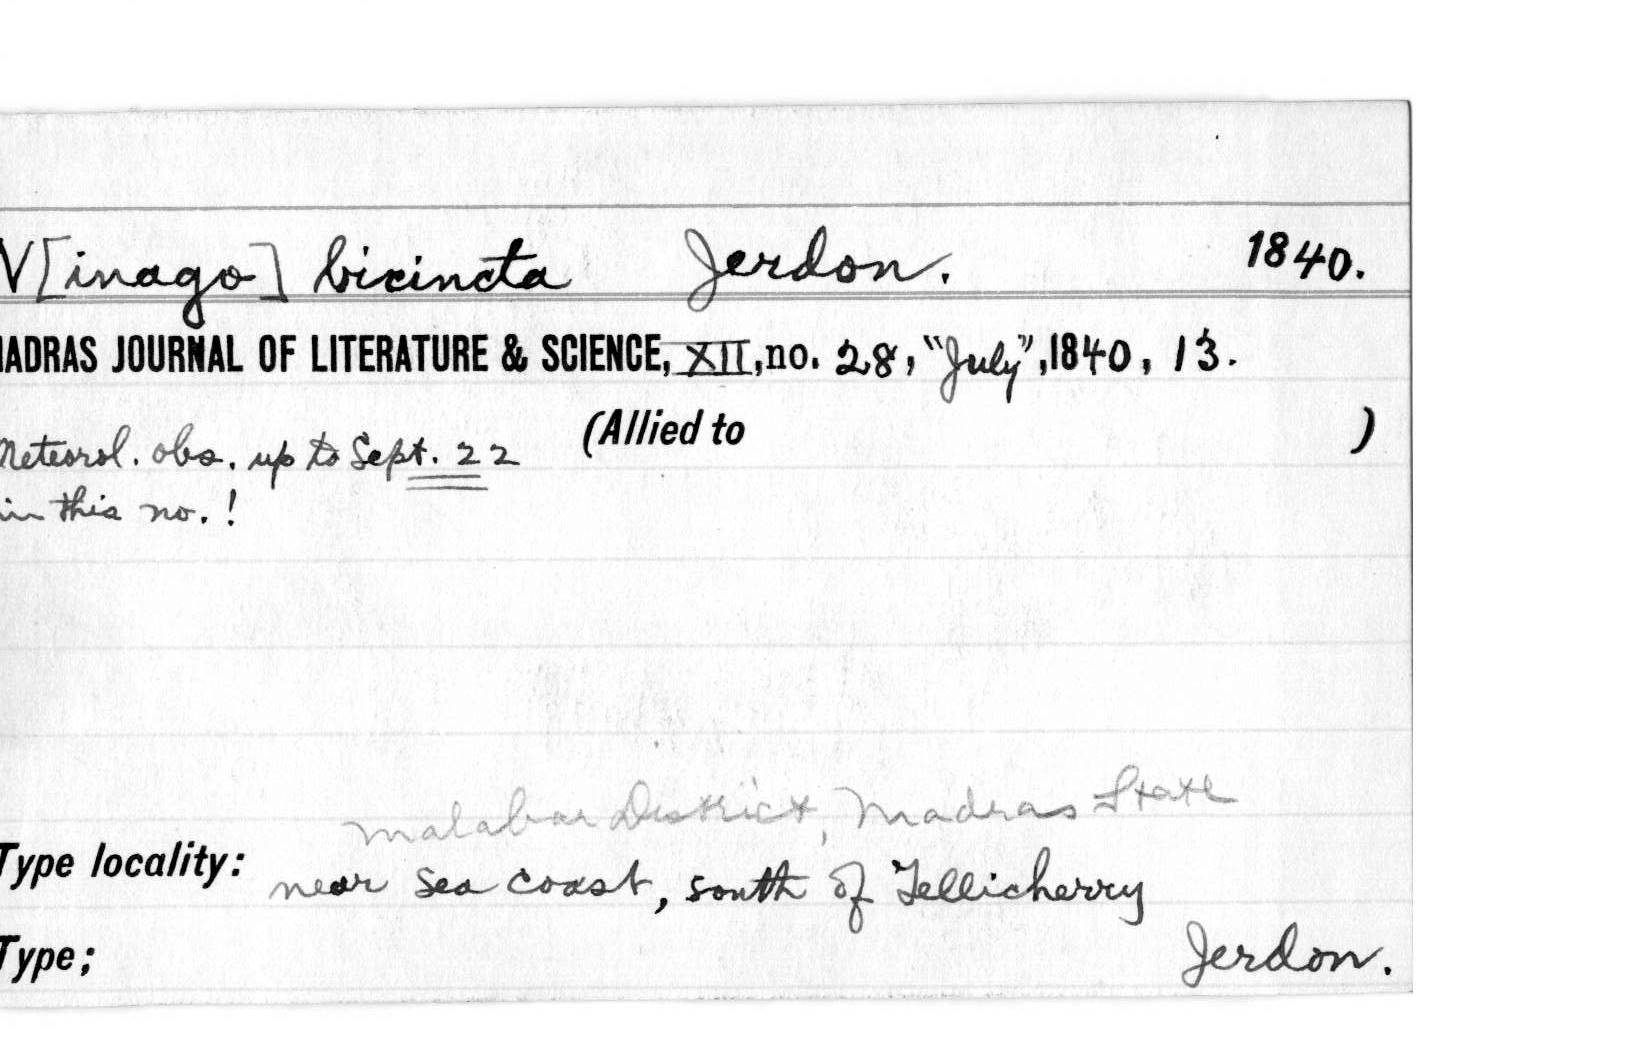 V[inago] bicincta Jerdon. 1840.
MADRAS JOURNAL OF LITERATURE & SCIENCE, XII, no. 28, "July", 1840, 13.
(Allied to )
Meteorol. obs. up to Sept. 22
in this no.!
Malabar District, Madras State
Type locality: near sea coast, south of Tellicherry
Type; Jerdon.